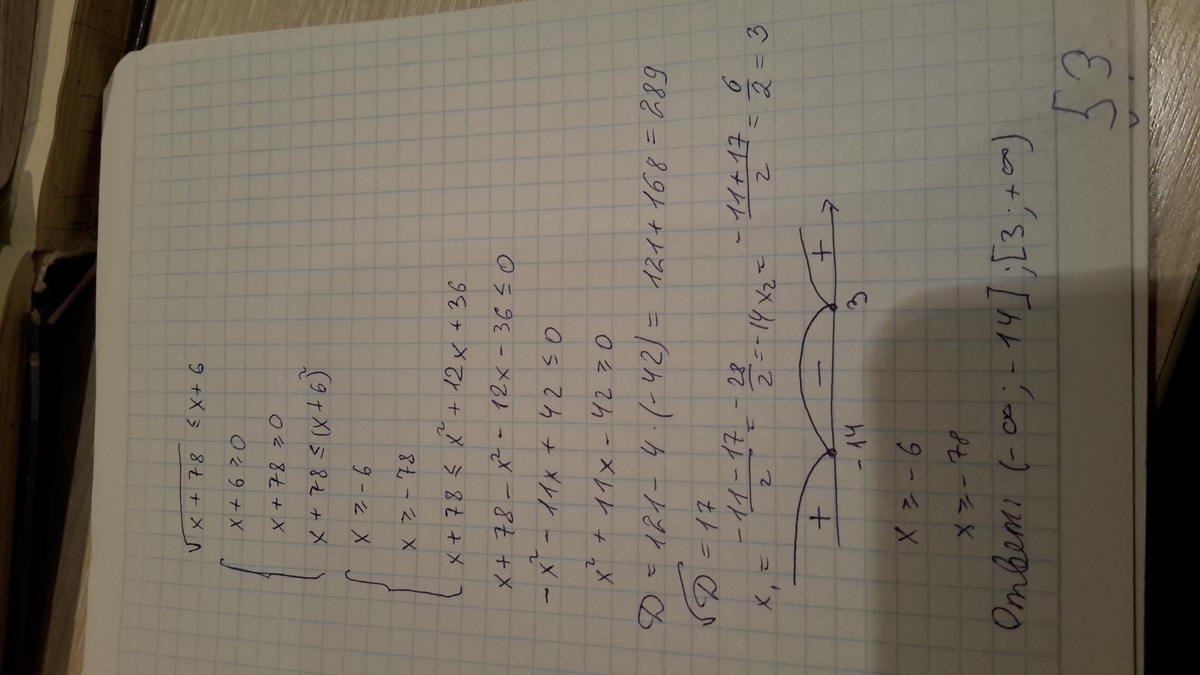 √x + 78 ≤ x + 6
x + 6 ≥ 0
x + 78 ≥ 0
x + 78 ≤ (x + 6)²
x ≥ - 6
x ≥ - 78
x + 78 ≤ x² + 12x + 36
x + 78 - x² - 12x - 36 ≤ 0
- x² - 11x + 42 ≤ 0
x² + 11x - 42 ≥ 0
D = 121 - 4 · (-42) = 121 + 168 = 289
√D = 17
x₁ = -11 - 17 / 2 = - 28 / 2 = -14 x₂ = -11 + 17 / 2 = 6 / 2 = 3
+ - +
-14 3
x ≥ - 6
x ≥ - 78
Ответ: (- ∞; -14] ; [3; + ∞)
[3